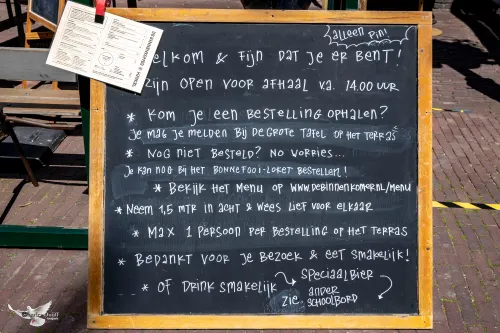 alleen pin!
elkom & fijn dat je er bent!
zijn open voor afhaal v.a. 14.00 uur
* Kom je een bestelling ophalen?
Je mag je melden bij de grote tafel op het terras
* Nog niet besteld? No worries...
Je kan nog bij het Bonnefooi-loket bestellen!
* Bekijk het menu op www.debinnenkomer.nl/menu
* Neem 1,5 mtr in acht & wees lief voor elkaar
* Max 1 persoon per bestelling op het terras
* Bedankt voor je bezoek & eet smakelijk!
* of drink smakelijk → speciaalbier
zie ander
schoolbord